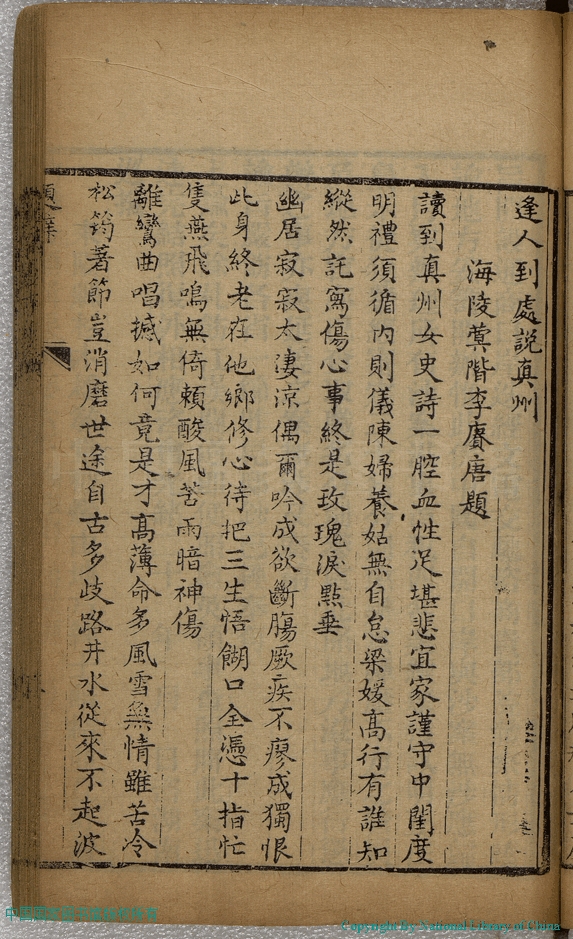 逢人到處說真州
海陵蓂階李賡唐題
讀到真州女史詩一腔血性足堪悲宜家謹守中閨度
明禮須循內則儀陳婦養姑無自怠梁媛高行有誰知
縱然託寓傷心事終是玫瑰淚點垂
幽居寂寂太凄涼偶爾吟成欲斷腸厥疾不瘳成獨恨
此身終老在他鄉修心待把三生悟餬口全憑十指忙
隻燕飛鳴無倚賴酸風苦雨暗神傷
離鸞曲唱撼如何竟是才高薄命多風雪無情雖苦冷
松筠著節豈消磨世途自古多歧路井水從來不起波
Copyright By National Library of China